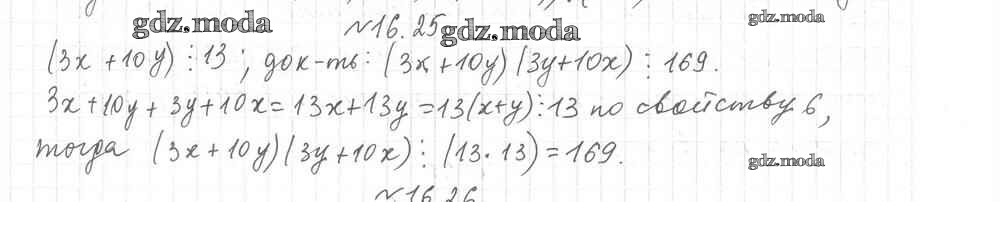 №16.25
(3x + 10y) ⋮ 13 ; док-ть: (3x + 10y) (3y + 10x) ⋮ 169.
3x + 10y + 3y + 10x = 13x + 13y = 13(x + y) ⋮ 13 по свойству 6,
тогда (3x + 10y) (3y + 10x) ⋮ (13 · 13) = 169.
№16.26
gdz.moda
gdz.moda
gdz.moda
gdz.moda